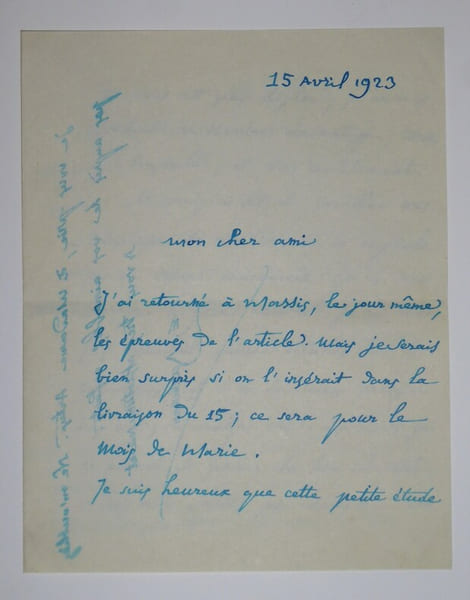 15 Avril 1923
Mon cher ami
J'ai retourné à Massis, le jour même,
les épreuves de l'article. Mais je serais
bien surpris si on l'insérait dans la
livraison du 15 ; ce sera pour le
Mois de Marie.
Je suis heureux que cette petite étude
je vous prie, à Madame